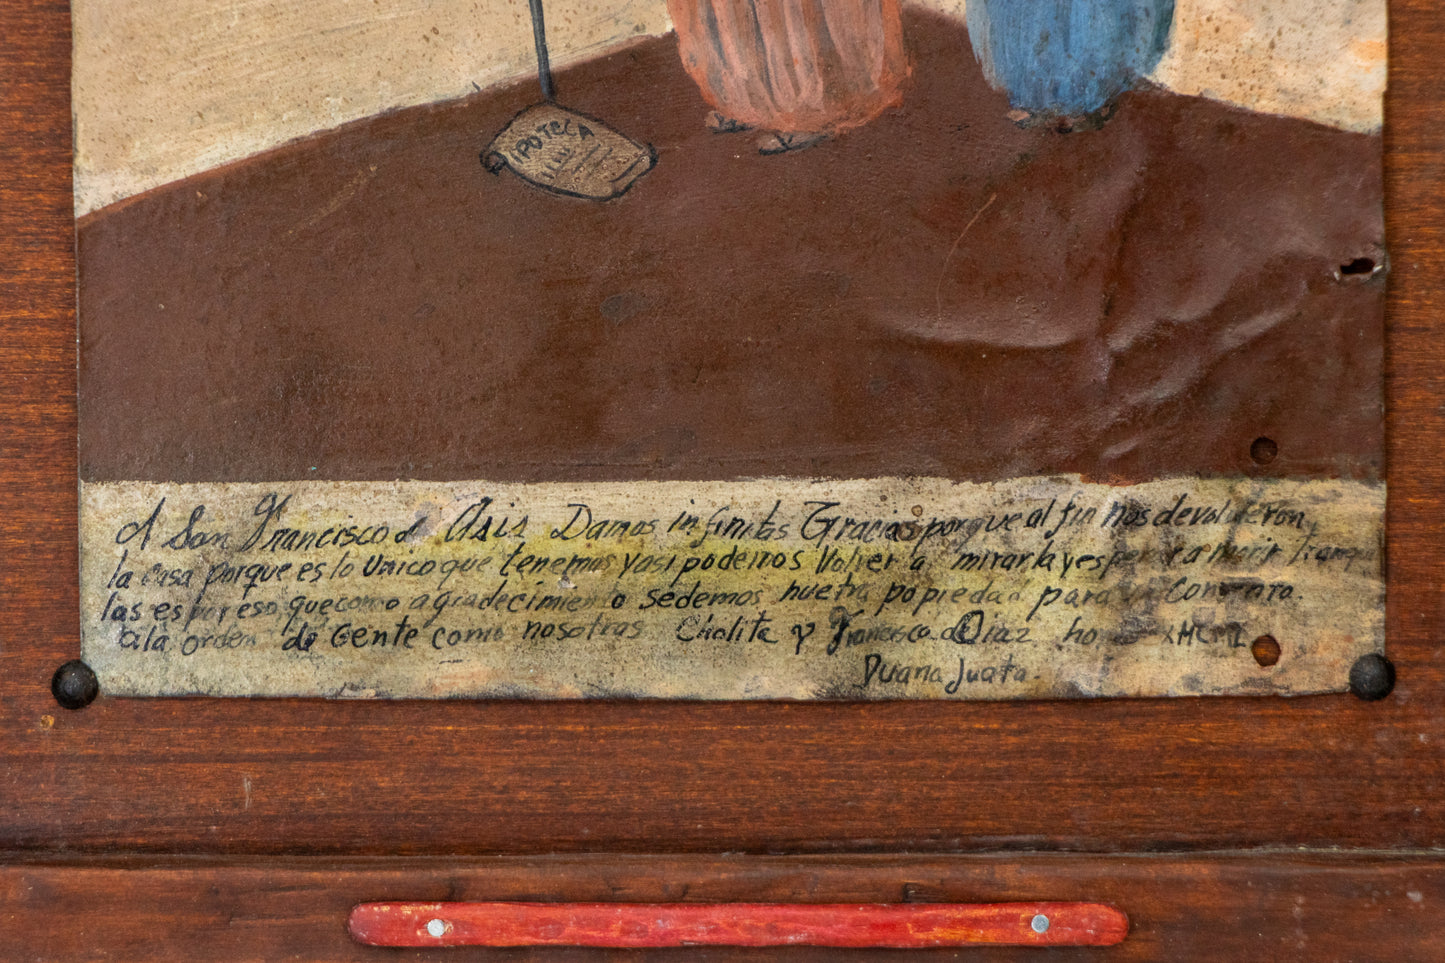 IPOTECA
A San Francisco d Asis Damos infinitas Gracias porque al fin nos devolvieron
la casa porque es lo Unico que tenemos y asi podemos Volver a mirarla y esperar a morir
las es por eso que como agradecimiento sedemos nuetra popiedad para
a la orden de Gente como nosotras Cholita y Francisca d Diaz
Duana Juata.